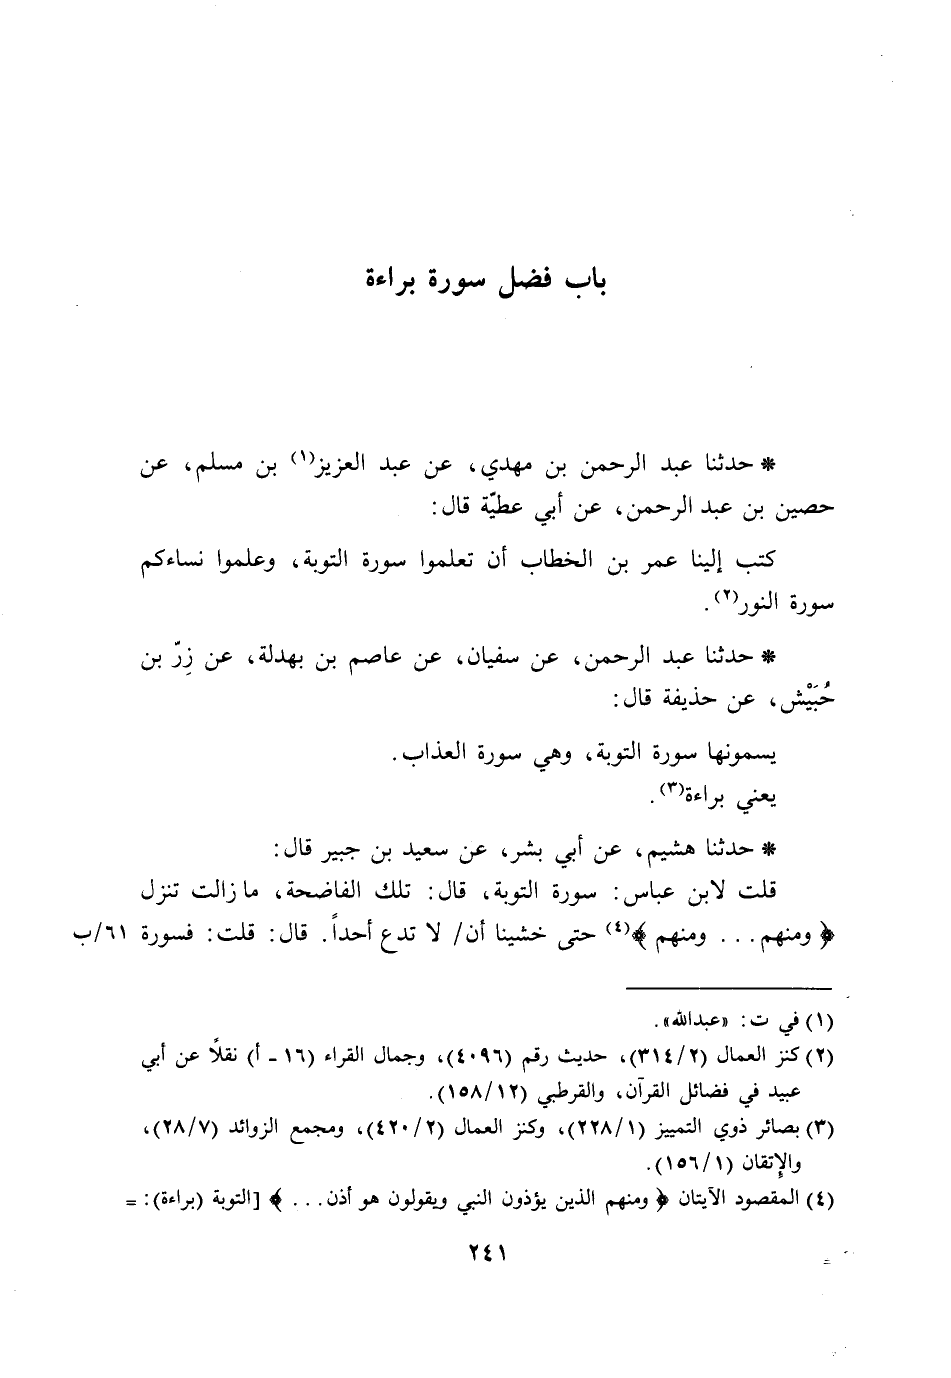 باب فضل سورة براءة
* حدثنا عبد الرحمن بن مهدي، عن عبد العزيز(١) بن مسلم، عن
حصين بن عبد الرحمن، عن أبي عطيّة قال:
كتب إلينا عمر بن الخطاب أن تعلموا سورة التوبة، وعلموا نساءكم
سورة النور(٢).
* حدثنا عبد الرحمن، عن سفيان، عن عاصم بن بهدلة، عن زِرّ بن
حُبَيْش، عن حذيفة قال:
يسمونها سورة التوبة، وهي سورة العذاب.
يعني براءة(٣).
* حدثنا هشيم، عن أبي بشر، عن سعيد بن جبير قال:
قلت لابن عباس: سورة التوبة، قال: تلك الفاضحة، ما زالت تنزل
﴿ ومنهم... ومنهم ﴾(٤) حتى خشينا أن/ لا تدع أحداً. قال: قلت: فسورة ٦١/ب
(١) في ت: «عبدالله».
(٢) كنز العمال (٣١٤/٢)، حديث رقم (٤٠٩٦)، وجمال القراء (١٦ ـ أ) نقلاً عن أبي
عبيد في فضائل القرآن، والقرطبي (١٥٨/١٢).
(٣) بصائر ذوي التمييز (٢٢٨/١)، وكنز العمال (٤٢٠/٢)، ومجمع الزوائد (٢٨/٧)،
والإتقان (١٥٦/١).
(٤) المقصود الآيتان ﴿ ومنهم الذين يؤذون النبي ويقولون هو أذن... ﴾ [التوبة (براءة): =
٢٤١